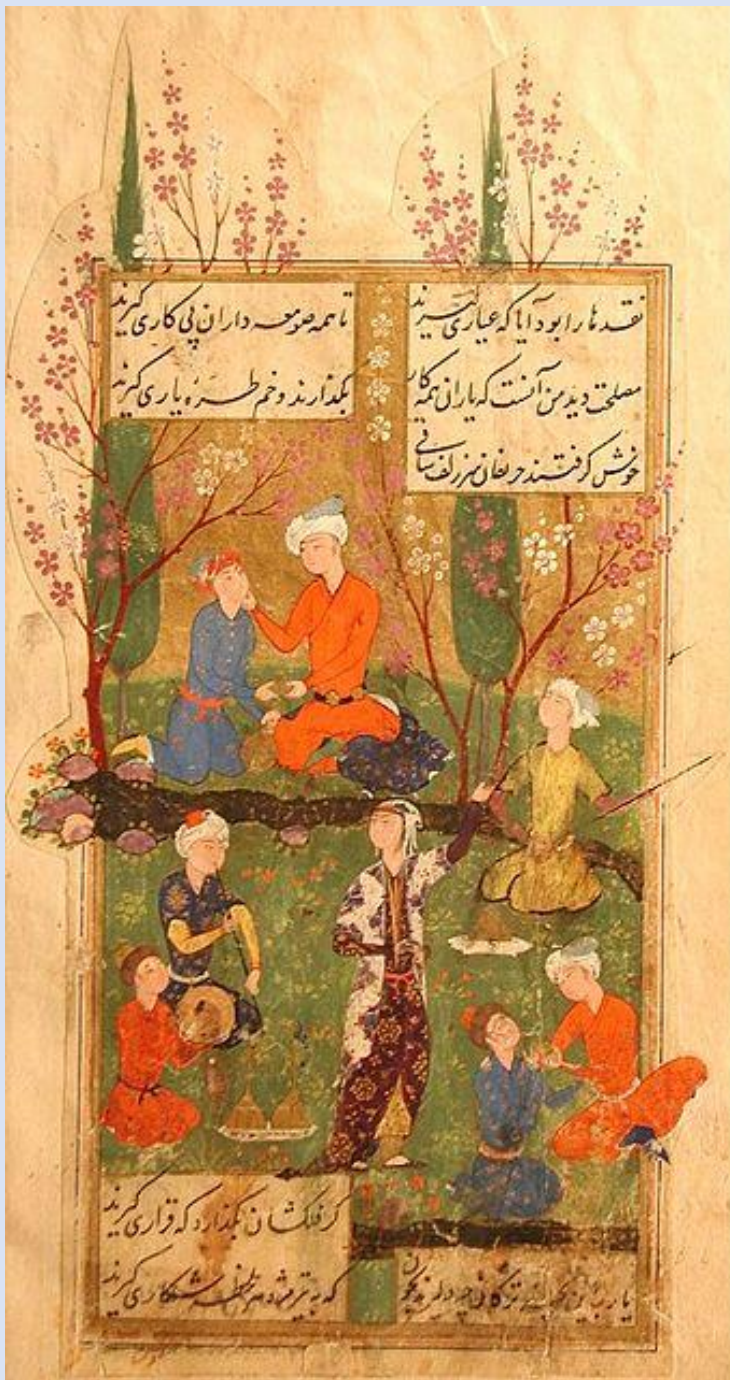 نقد هارا بود آیا که عیاری کیرند
تا همه صومعه داران پی کاری کیرند
مصلحت دید من آنست که یاران همه کار
بکذارند و خم طره یاری کیرند
خوش کرفتند حریفان سر زلف ساقی
کر فلکشان بکذارد که قراری کیرند
یارب این بچه ترکان چه دلیرند بخون
که به تیر مژه هر لحظه شکاری کیرند